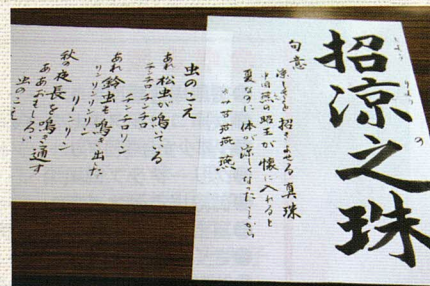 招涼之珠
しょう りょう の
句意
涼しさを招きよせる真珠
中国燕の昭王が懐に入れると
夏なのに、体が涼しくなったことから
燕 燕
虫のこえ
あれ松虫が鳴いている
チンチロチンチロ
チンチロリン
あれ鈴虫も鳴き出した
リンリンリンリン
リーンリン
秋の夜長を鳴き通す
ああおもしろい
虫のこえ